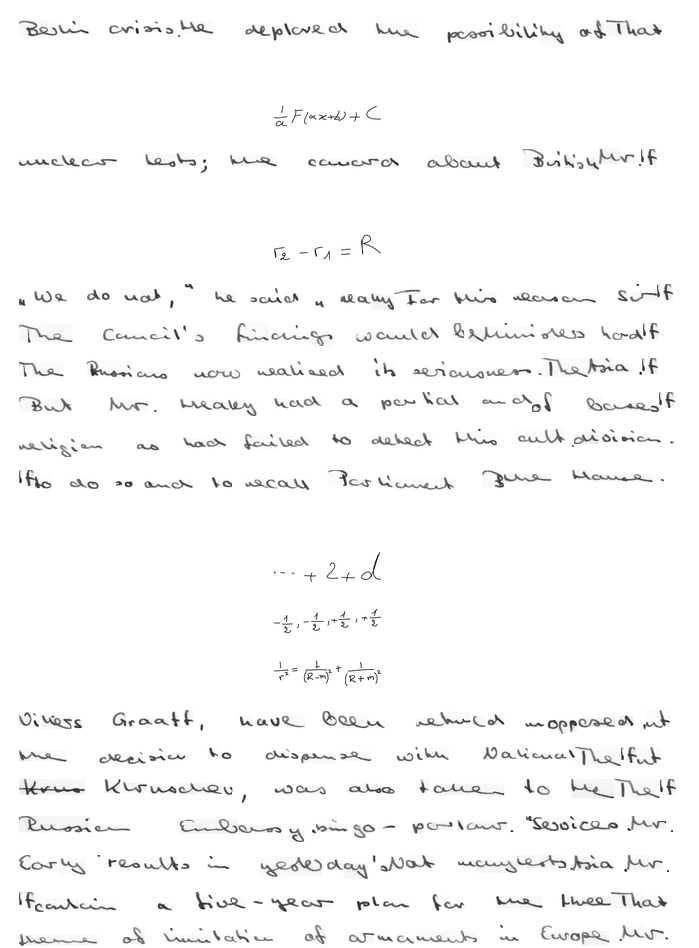 Berlin crisis. He deplored the possibility of That
\frac{1}{a} F(ax+b) + C
nuclear tests; the canard about British Mr. If
r_2 - r_1 = R
"We do not," he said "really For this reason If
The Council's findings would be hard If
The Russians now realised its seriousness. The Asia. If
But Mr. Healey had a partial and of bases If
religion as had failed to detect this cult division.
If to do so and to recall Parliament the House.
\cdots + 2 + d
-\frac{1}{2}, -\frac{1}{2}, +\frac{1}{2}, +\frac{1}{2}
\frac{1}{r^2} = \frac{1}{(R-m)^2} + \frac{1}{(R+m)^2}
Graaff, have been unopposed, ut
the decision to dispense with National The If ut
Khruschev, was also taken to the The If
Russian Embassy. bingo - parlour. "Services. Mr.
Early results in yesterday's Nat many tests. Asia. Mr.
If contain a five-year plan for the three That
theme of limitation of armaments in Europe. Mr.